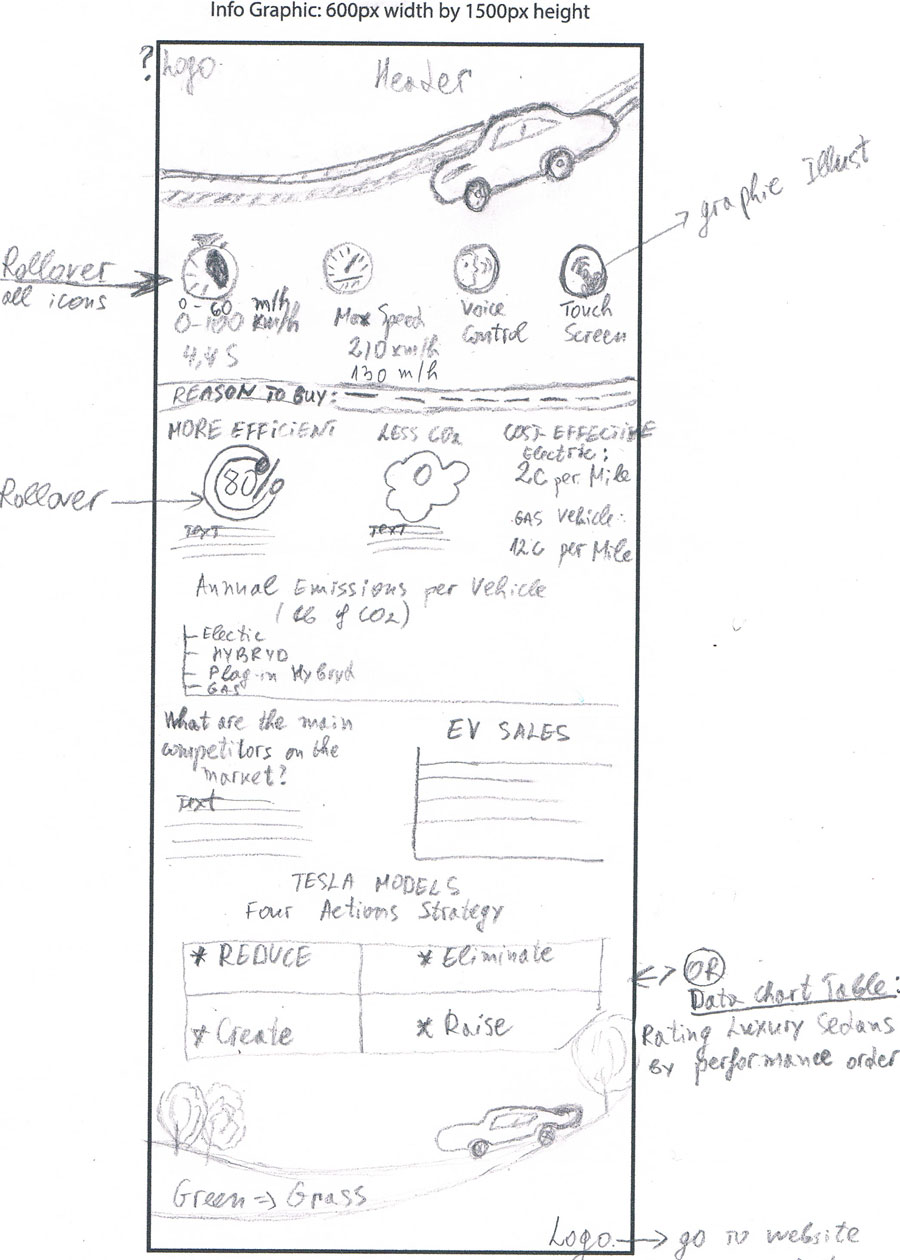 Info Graphic: 600px width by 1500px height
?
Logo
Header
graphic Illust
Rollover
all icons
0-60 m/h
0-100 km/h
4,4 S
Max Speed
210 km/h
130 m/h
Voice
Control
Touch
Screen
REASON TO BUY:
MORE EFFICIENT
LESS CO2
COST-EFFECTIVE
Electric:
2C per Mile
GAS Vehicle:
12C per Mile
Rollover
80%
0
TEXT
TEXT
Annual Emissions per Vehicle
(lb of CO2)
Electic
HYBRYD
Plag-in Hybryd
GAS
What are the main
competitors on the
market?
Text
EV SALES
TESLA MODELS
Four Actions Strategy
* REDUCE
* Eliminate
* Create
* Raise
OR
Data Chart Table:
Rating Luxury Sedans
By performance order
Green => Grass
Logo
go to website